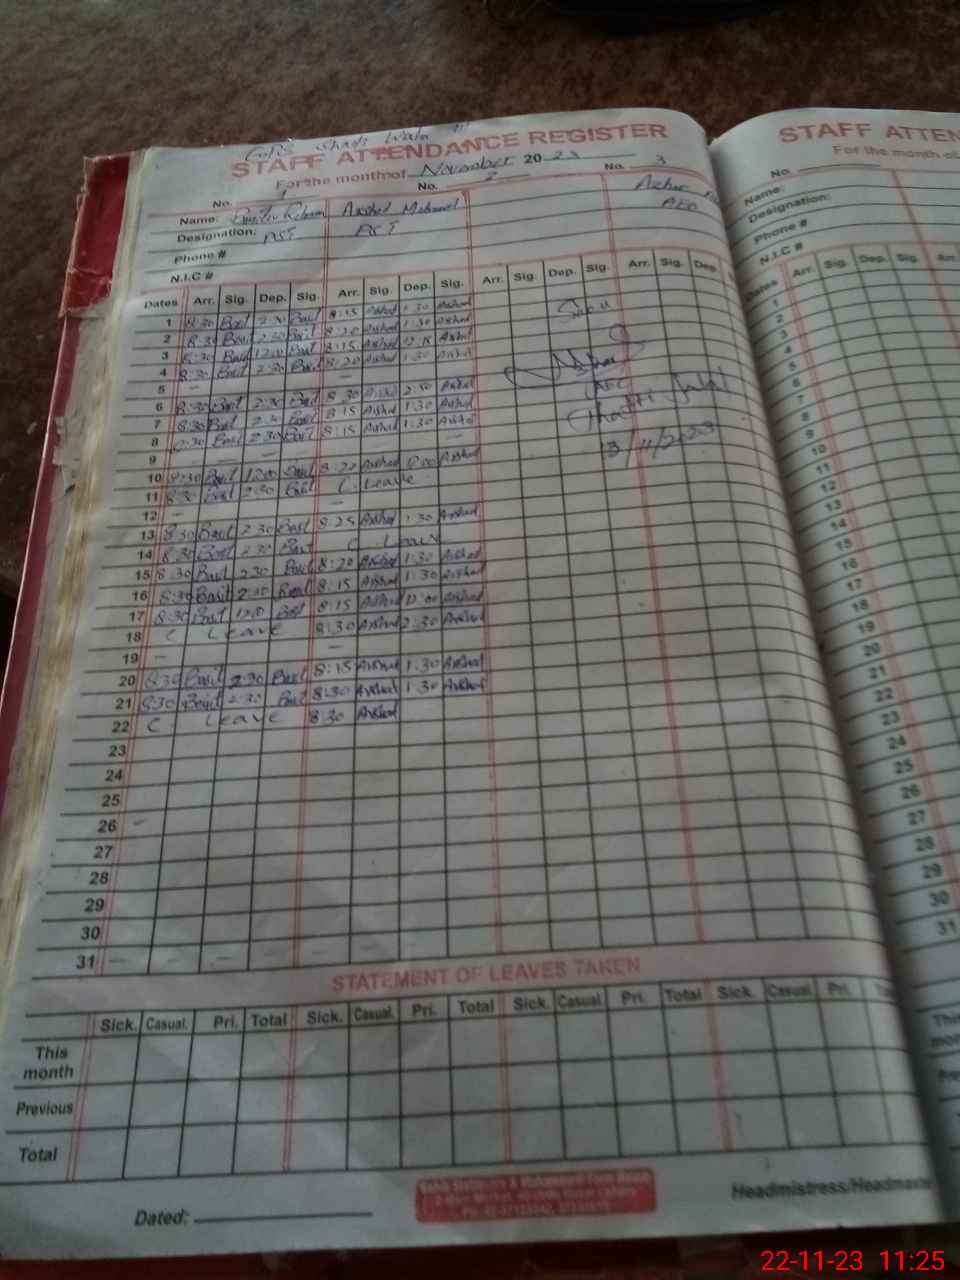 STAFF ATTENDANCE REGISTER
For the month of November 20 23
No. 1 No. 2 No. 3
Name: Arshad
Designation: PST PST AEO
Phone #
N.I.C #
Dates Arr. Sig. Dep. Sig. Arr. Sig. Dep. Sig. Arr. Sig. Dep. Sig. Arr. Sig. Dep
1 8:30 Basit 2:30 Basit 8:15 Arshad 1:30 Arshad
2 8:30 Basit 2:30 Basit 8:20 Arshad 1:30 Arshad
3 8:30 Basit 12:00 Basit 8:15 Arshad 12:15 Arshad
4 8:30 Basit 2:30 Basit 8:20 Arshad 1:30 Arshad
5 — —
6 8:30 Basit 2:30 Basit 8:30 Arshad 2:30 Arshad
7 8:30 Basit 2:30 Basit 8:15 Arshad 1:30 Arshad
8 8:30 Basit 2:30 Basit 8:15 Arshad 1:30 Arshad
9 — — —
10 8:30 Basit 12:00 Basit 8:22 Arshad Arshad
11 8:30 Basit 2:30 Basit C. Leave
12 — —
13 8:30 Basit 2:30 Basit 8:25 Arshad 1:30 Arshad
14 8:30 Basit 2:30 Basit C Leave
15 8:30 Basit 2:30 Basit 8:20 Arshad 1:30 Arshad
16 8:30 Basit 2:30 Basit 8:15 Arshad 1:30 Arshad
17 8:30 Basit 12:00 Basit 8:15 Arshad 12:00 Arshad
18 C Leave 8:30 Arshad 2:30 Arshad
19 — —
20 8:30 Basit 2:30 Basit 8:15 Arshad 1:30 Arshad
21 8:30 Basit 2:30 Basit 8:30 Arshad 1:30 Arshad
22 C Leave 8:30 Arshad
23
24
25
26 —
27
28
29
30
31 — — — — — —
13/11/2023
STATEMENT OF LEAVES TAKEN
Sick. Casual. Pri. Total Sick. Casual. Pri. Total Sick. Casual Pri. Total Sick. Casual. Pri.
This month
Previous
Total
Dated:
Headmistress/Headmas
STAFF ATTEN
For the month of
No.
Name:
Designation:
Phone #
N.I.C #
Dates Arr. Sig. Dep. Sig. Arr.
1
2
3
4
5
6
7
8
9
10
11
12
13
14
15
16
17
18
19
20
21
22
23
24
25
26
27
28
29
30
31
22-11-23 11:25